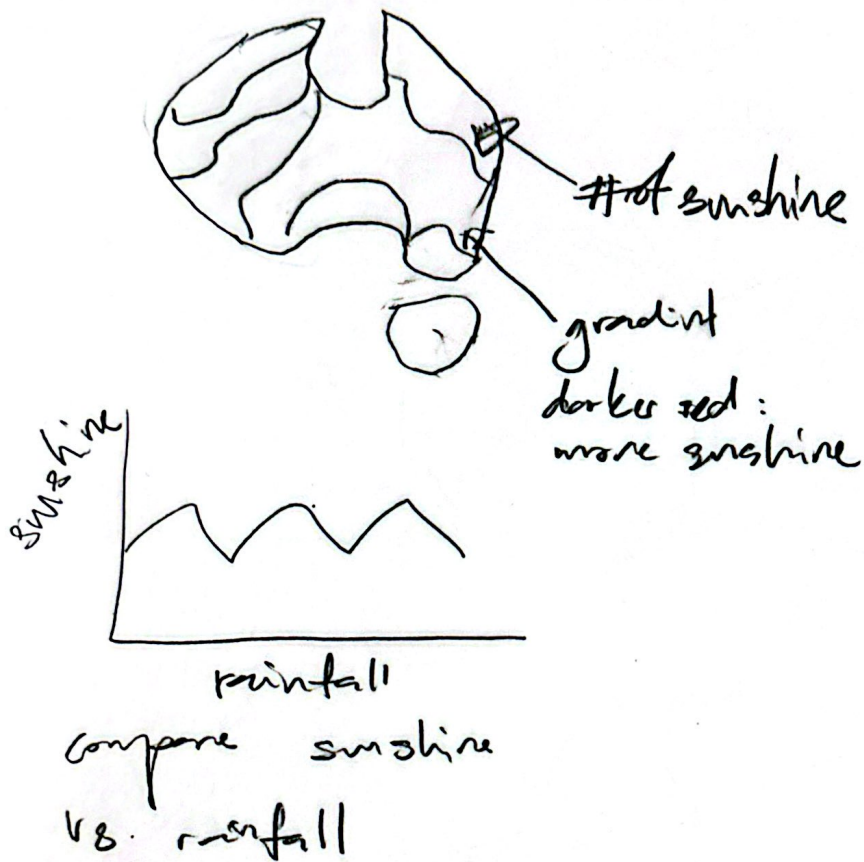 # of sunshine
gradint
darker red:
more sunshine
sunshine
rainfall
compare sunshine
vs. rainfall